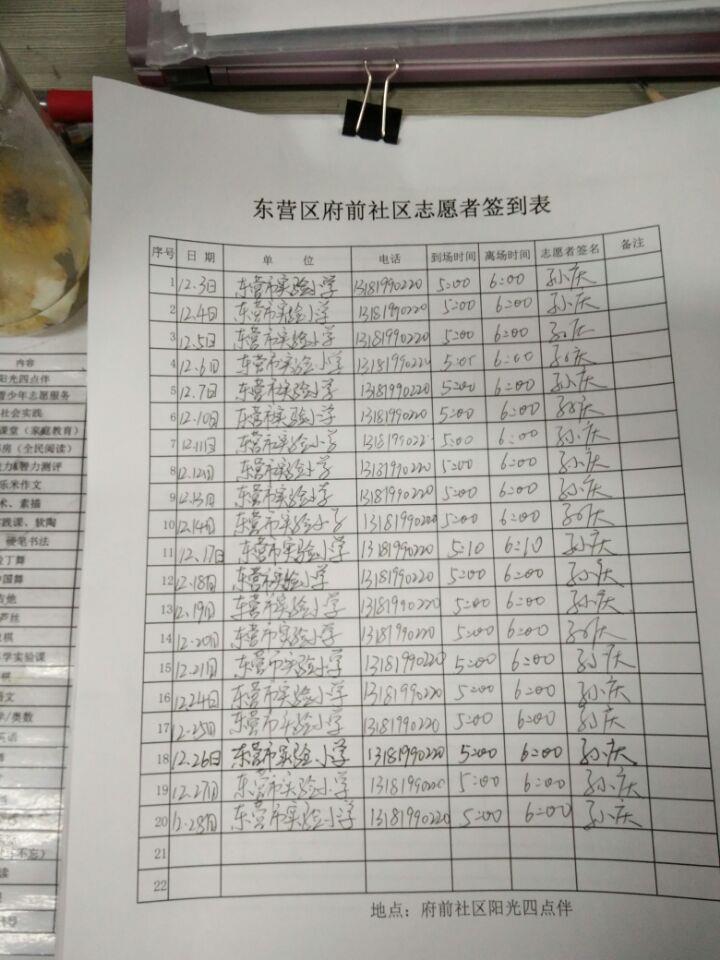 东营区府前社区志愿者签到表
序号 日期 单位 电话 到场时间 离场时间 志愿者签名 备注
1 12.3日 东营市实验小学 13181990220 5:00 6:00 孙庆
2 12.4日 东营市实验小学 13181990220 5:00 6:00 孙庆
3 12.5日 东营市实验小学 13181990220 5:00 6:00 孙庆
4 12.6日 东营市实验小学 13181990220 5:00 6:00 孙庆
5 12.7日 东营市实验小学 13181990220 5:00 6:00 孙庆
6 12.10日 东营市实验小学 13181990220 5:00 6:00 孙庆
7 12.11日 东营市实验小学 1318199022 5:00 6:00 孙庆
8 12.12日 东营市实验小学 13181990220 5:00 6:00 孙庆
9 12.13日 东营市实验小学 13181990220 5:00 6:00 孙庆
10 12.14日 东营市实验小学 13181990220 5:00 6:00 孙庆
11 12.17日 东营市实验小学 13181990220 5:10 6:10 孙庆
12 12.18日 东营市实验小学 13181990220 5:00 6:00 孙庆
13 12.19日 东营市实验小学 13181990220 5:00 6:00 孙庆
14 12.20日 东营市实验小学 13181990220 5:00 6:00 孙庆
15 12.21日 东营市实验小学 13181990220 5:00 6:00 孙庆
16 12.24日 东营市实验小学 13181990220 5:00 6:00 孙庆
17 12.25日 东营市实验小学 13181990220 5:00 6:00 孙庆
18 12.26日 东营市实验小学 13181990220 5:00 6:00 孙庆
19 12.27日 东营市实验小学 13181990220 5:00 6:00 孙庆
20 12.28日 东营市实验小学 13181990220 5:00 6:00 孙庆
21
22
地点：府前社区阳光四点伴
内容
阳光四点伴
青少年志愿服务
社会实践
课堂（家庭教育）
房（全民阅读）
力&智力测评
乐米作文
术、素描
践课、软陶
硬笔书法
拉丁舞
中国舞
吉他
葫芦丝
棋
学实验课
棋
语文
学/奥数
英语